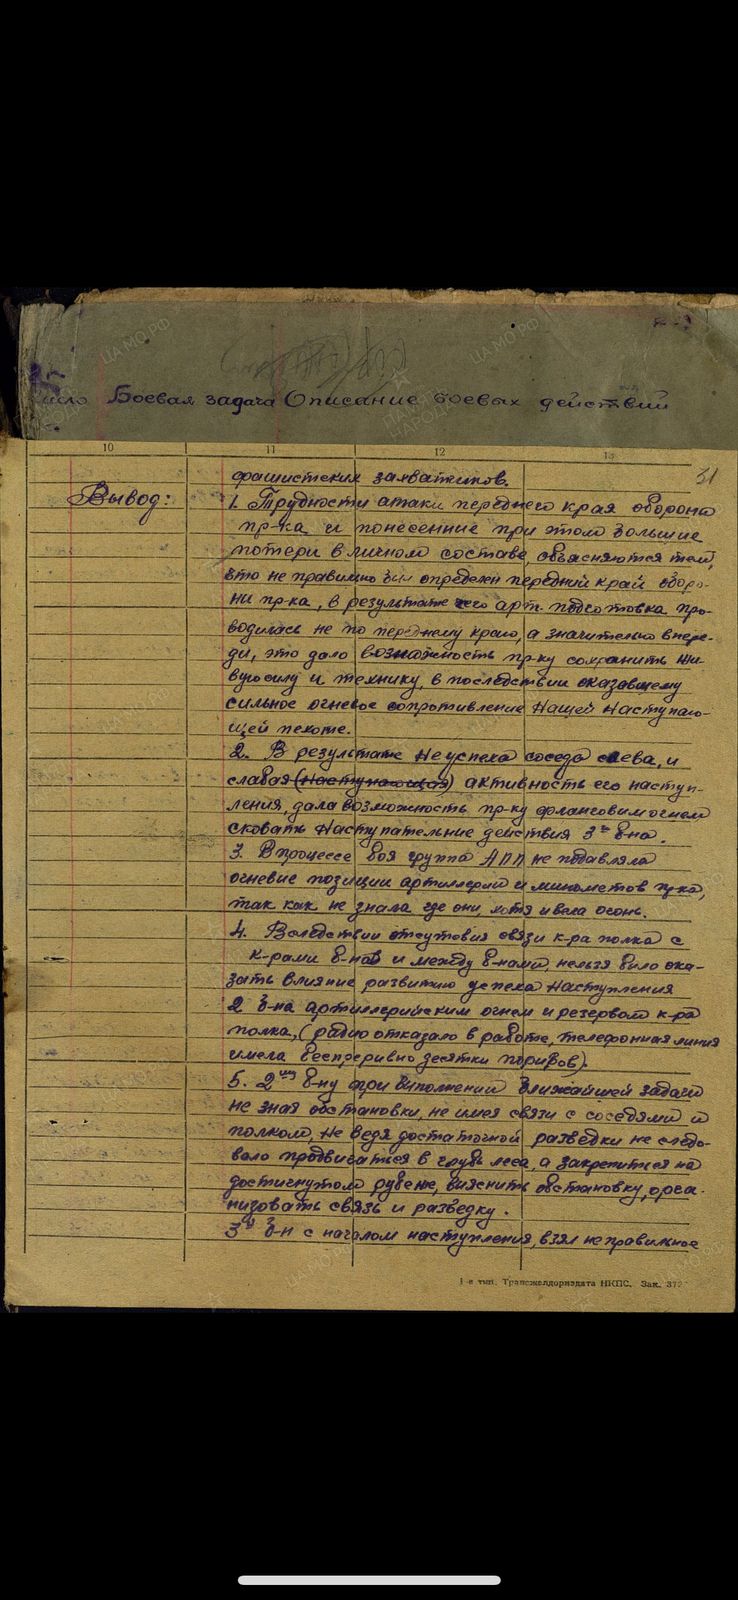 Число Боевая задача Описание боевых действий
10 11 12 13
31
фашистских захватчиков.
Вывод:
1. Трудности атаки переднего края обороны
пр-ка и понесенные при этом большие
потери в личном составе, объясняются тем,
что не правильно был определен передний край оборо-
ни пр-ка, в результате чего арт. подготовка про-
водилась не по переднему краю, а значительно впере-
ди, это дало возможность пр-ку сохранить жи-
вую силу и технику, в последствии оказавшему
сильное огневое сопротивление нашей наступаю-
щей пехоте.
2. В результате Неуспеха соседа слева, и
слабая (Наступающая) активность его наступ-
ления, дала возможность пр-ку фланговим огнем
сковать Наступательние действия 3го б-на.
3. В процессе боя группа АПП не подавляла
огневие позиции артиллерии и минометов пр-ка,
так как не знала где они, хотя и вела огонь.
4. Вследствии отсутствия связи к-ра полка с
к-рами б-нов и между б-нами, нельзя било ока-
зать влияние развитию успеха Наступления
2 б-на артиллерийским огнем и резервом к-ра
полка, (радио отказало в работе, телефонная линия
имела беспреривно десятки поривов).
5. 2му б-ну при виполнении ближайшей задачи
не зная обстановки, не имея связи с соседями и
полком, Не ведя достаточной разведки не следо-
вало продвигаться в глубь леса, а закрепиться на
достигнутом рубеже, вияснить обстановку, орга-
низовать связь и разведку.
3й б-н с началом наступления, взял неправильное
1-я тип. Трансжелдориздата НКПС. Зак. 372
ЦА МО РФ
ПАМЯТЬ НАРОДА